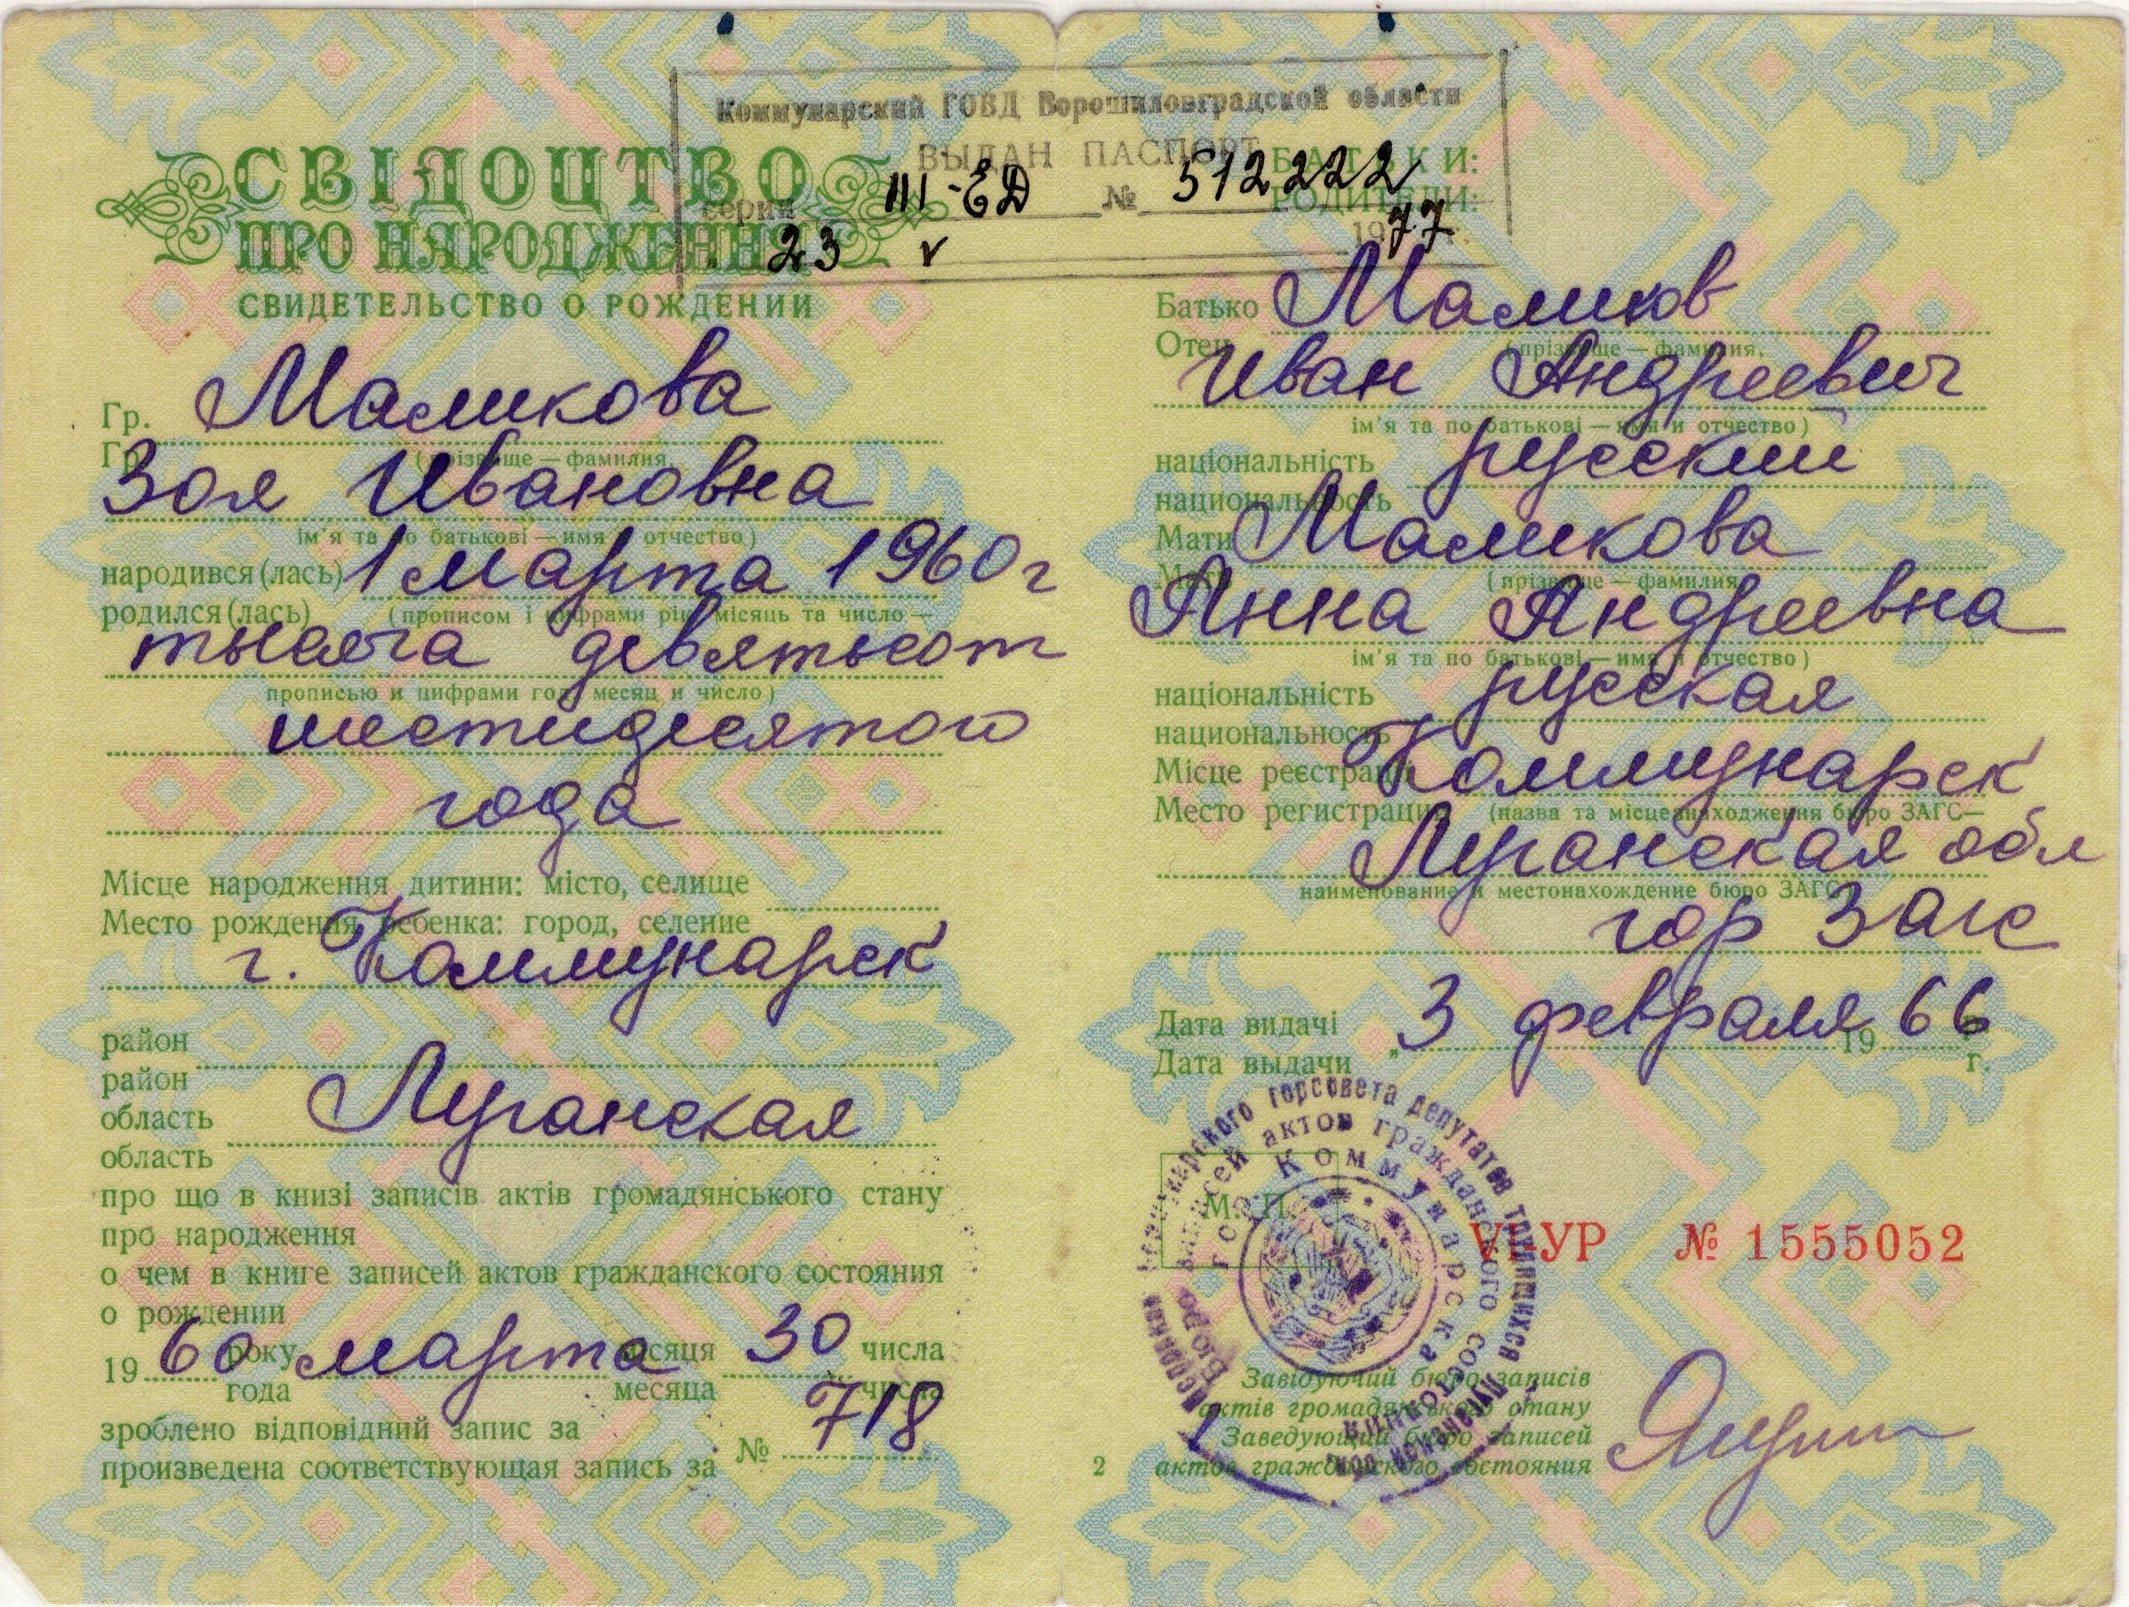 Коммунарский ГОВД Ворошиловградской области
ВЫДАН ПАСПОРТ
серии III-ЕД № 512222
23 V 1977 г.
СВІДОЦТВО
ПРО НАРОДЖЕННЯ
СВИДЕТЕЛЬСТВО О РОЖДЕНИИ
Гр. Маликова
Гр.
(прізвище — фамилия,
Зоя Ивановна
ім'я та по батькові — имя и отчество)
народився (лась) 1 марта 1960 г
родился (лась)
(прописом і цифрами рік, місяць та число —
тысяча девятьсот
прописью и цифрами год, месяц и число)
шестидесятого
года
Місце народження дитини: місто, селище
Место рождения ребенка: город, селение
г. Коммунарск
район
район
область Луганская
область
про що в книзі записів актів громадянського стану
про народження
о чем в книге записей актов гражданского состояния
о рождении
19 60 року марта місяця 30 числа
года месяца числа
зроблено відповідний запис за
произведена соответствующая запись за № 718
БАТЬКИ:
РОДИТЕЛИ:
Батько Маликов
Отец
(прізвище — фамилия,
Иван Андреевич
ім'я та по батькові — имя и отчество)
національність русский
национальность
Мати Маликова
Мать
(прізвище — фамилия,
Анна Андреевна
ім'я та по батькові — имя и отчество)
національність русская
национальность
Місце реєстрації Коммунарск
Место регистрации
(назва та місцезнаходження бюро ЗАГС —
Луганская обл
наименование и местонахождение бюро ЗАГС)
гор Загс
Дата видачі 3 февраля 19 66 г.
Дата выдачи " г.
М. П.
горсовета депутатов трудящихся
Бюро записей актов гражданского состояния
гор. Коммунарска
VI-УР № 1555052
Завідуючий бюро записів
актів громадянського стану
Заведующий бюро записей
актов гражданского состояния
2